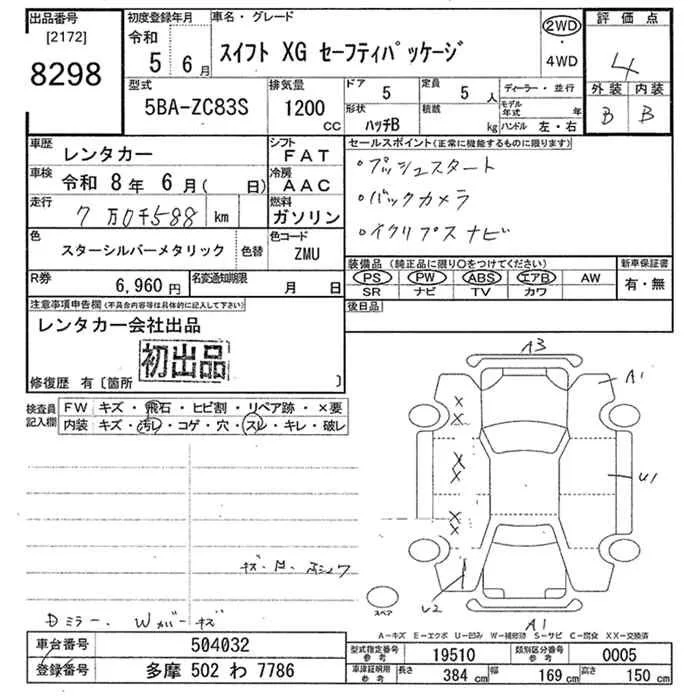 出品番号 [2172] 8298
初度登録年月 令和 5 6月
車名・グレード スイフト XG セーフティパッケージ
2WD・4WD
評価点 4
外装 内装
B B
型式 5BA-ZC83S
排気量 1200 CC
ドア 5
定員 5 人
形状 ハッチB
積載 kg
ディーラー・並行
モデル年式 年
ハンドル 左・右
車歴 レンタカー
シフト FAT
車検 令和 8年 6月( 日)
冷房 AAC
走行 7万0千588 km
燃料 ガソリン
色 スターシルバーメタリック 色替
色コード ZMU
R券 6,960円
名変通知期限 月 日
セールスポイント(正常に機能するものに限ります)
・プッシュスタート
・バックカメラ
・イクリプスナビ
装備品(純正品に限り〇をつけてください)
PS PW ABS エアB AW
SR ナビ TV カワ
新車保証書
有・無
後日品
注意事項申告欄(不具合内容等は具体的に記入して下さい)
レンタカー会社出品
初出品
修復歴 有〔箇所 〕
検査員記入欄
FW キズ・飛石・ヒビ割・リペア跡・×要
内装 キズ・汚レ・コゲ・穴・スレ・キレ・破レ
A3
A1
U1
U2
A1
スペア
Dミラー、Wカバーキズ
A-キズ E-エクボ U-凹み W-補修跡 S-サビ C-腐食 XX-交換済
車台番号 504032
登録番号 多摩 502 わ 7786
型式指定番号 参考 19510
類別区分番号 参考 0005
車庫証明用 参考 長さ 384 cm 幅 169 cm 高さ 150 cm